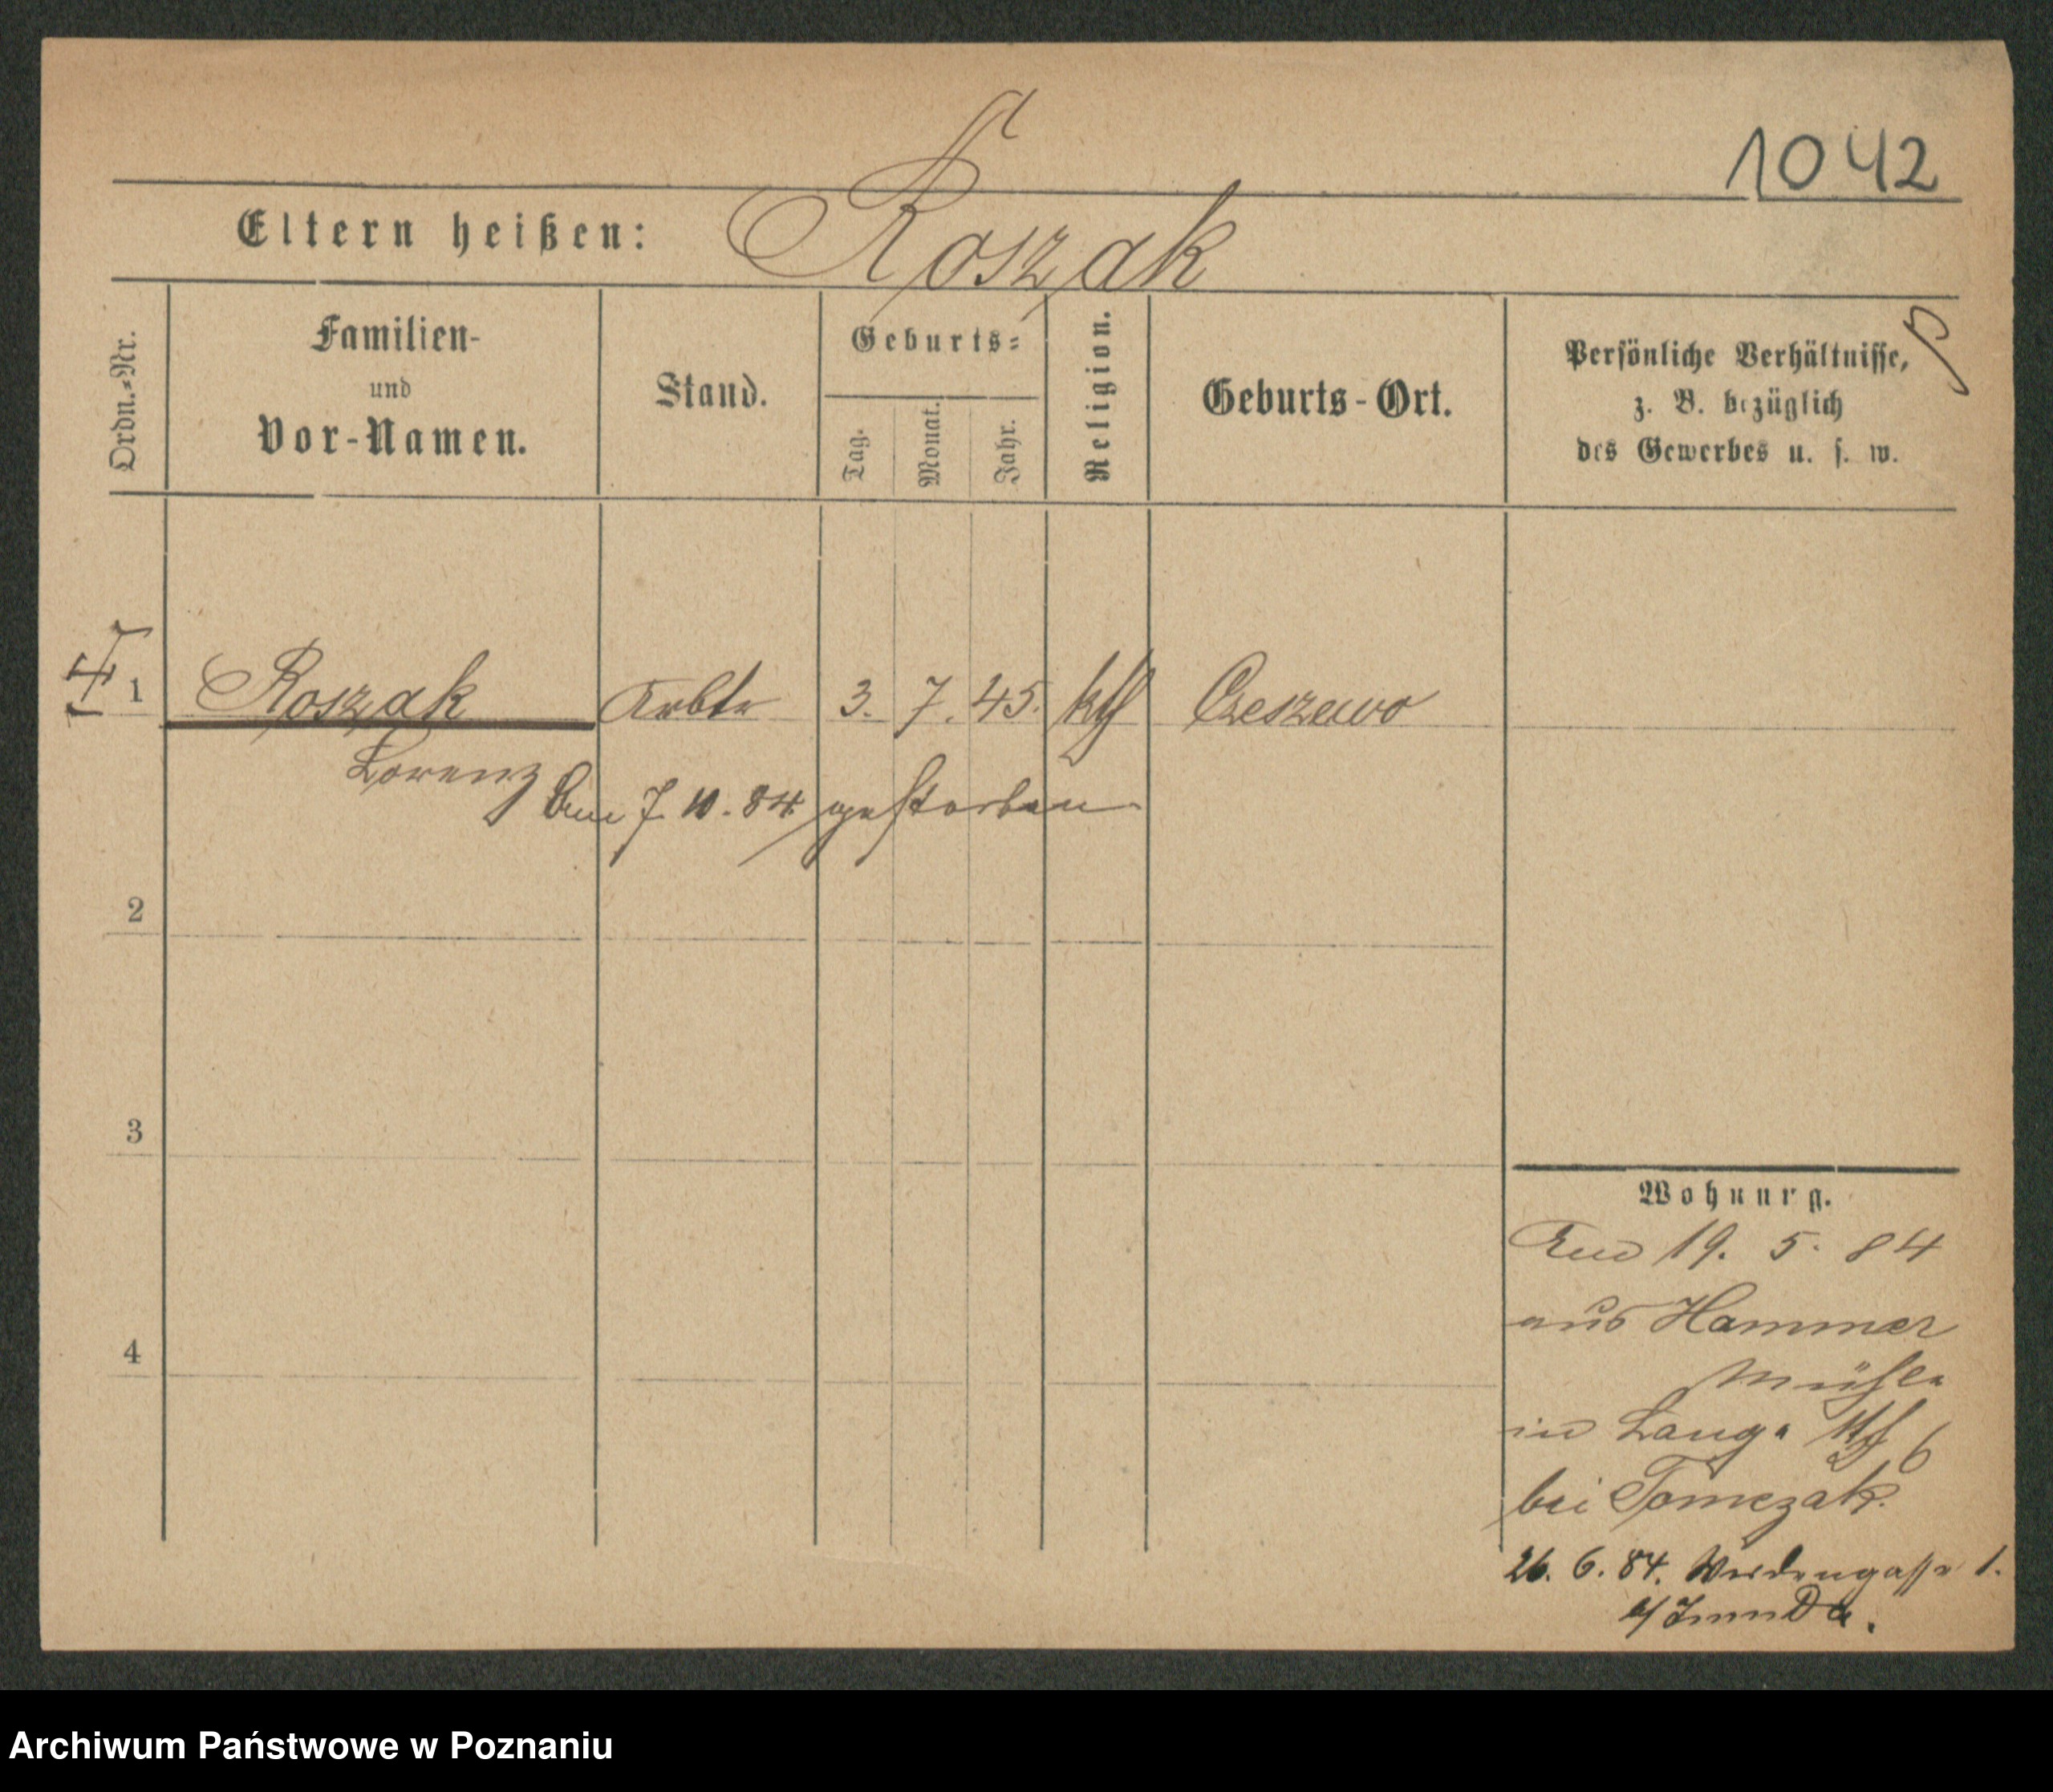 1042
Eltern heißen: Roszak
Ordn.-Nr.
Familien-
und
Vor-Namen.
Stand.
Geburts-
Tag.
Monat.
Jahr.
Religion.
Geburts-Ort.
Persönliche Verhältnisse,
z. B. bezüglich
des Gewerbes u. s. w.
1 Roszak Arbtr 3. 7. 45. kth Czeszewo
Lorenz
Am 7. 10. 84 gestorben
2
3
4
Wohnung.
19. 5. 84
aus Hammer
mühle
in Lange 6
bei Tomczak.
26. 6. 84. 1.
Archiwum Państwowe w Poznaniu